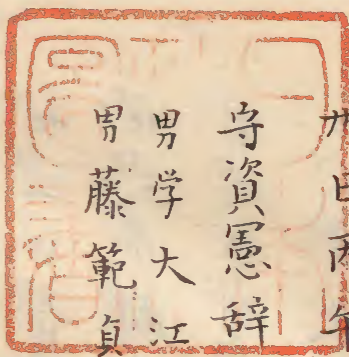 日丙午
守資憲辞
男学大江
男藤範貞